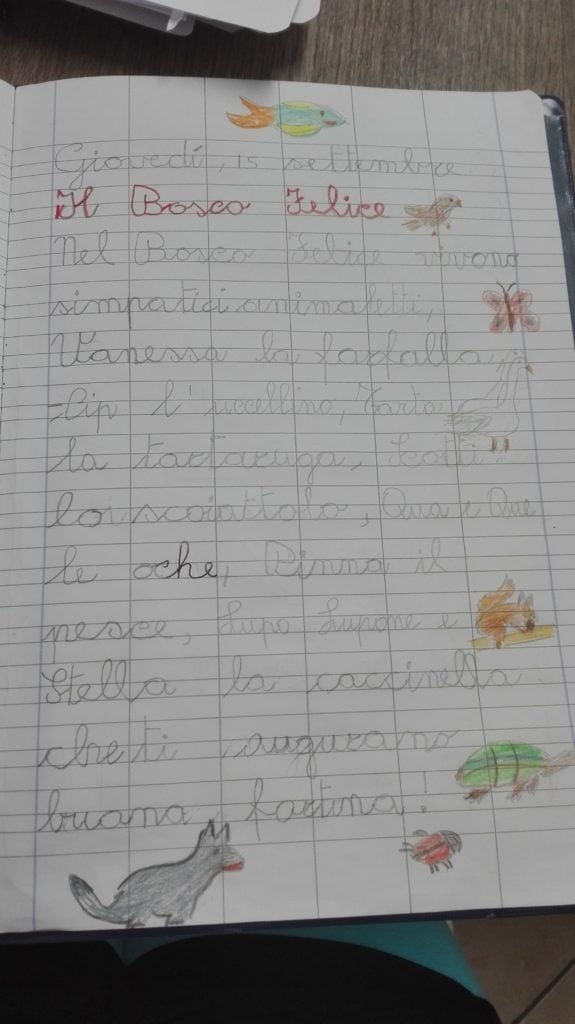 Giovedí, 15 settembre
Il Bosco Felice
Nel Bosco Felice vivono
simpatici animaletti,
Vanessa la farfalla,
Cip l'uccellino, Tarta
la tartaruga, Scotti
lo scoiattolo, Qua e Que
le oche, Pinna il
pesce, Lupo Lupone e
Stella la coccinella
che ti augurano
buona fortuna!